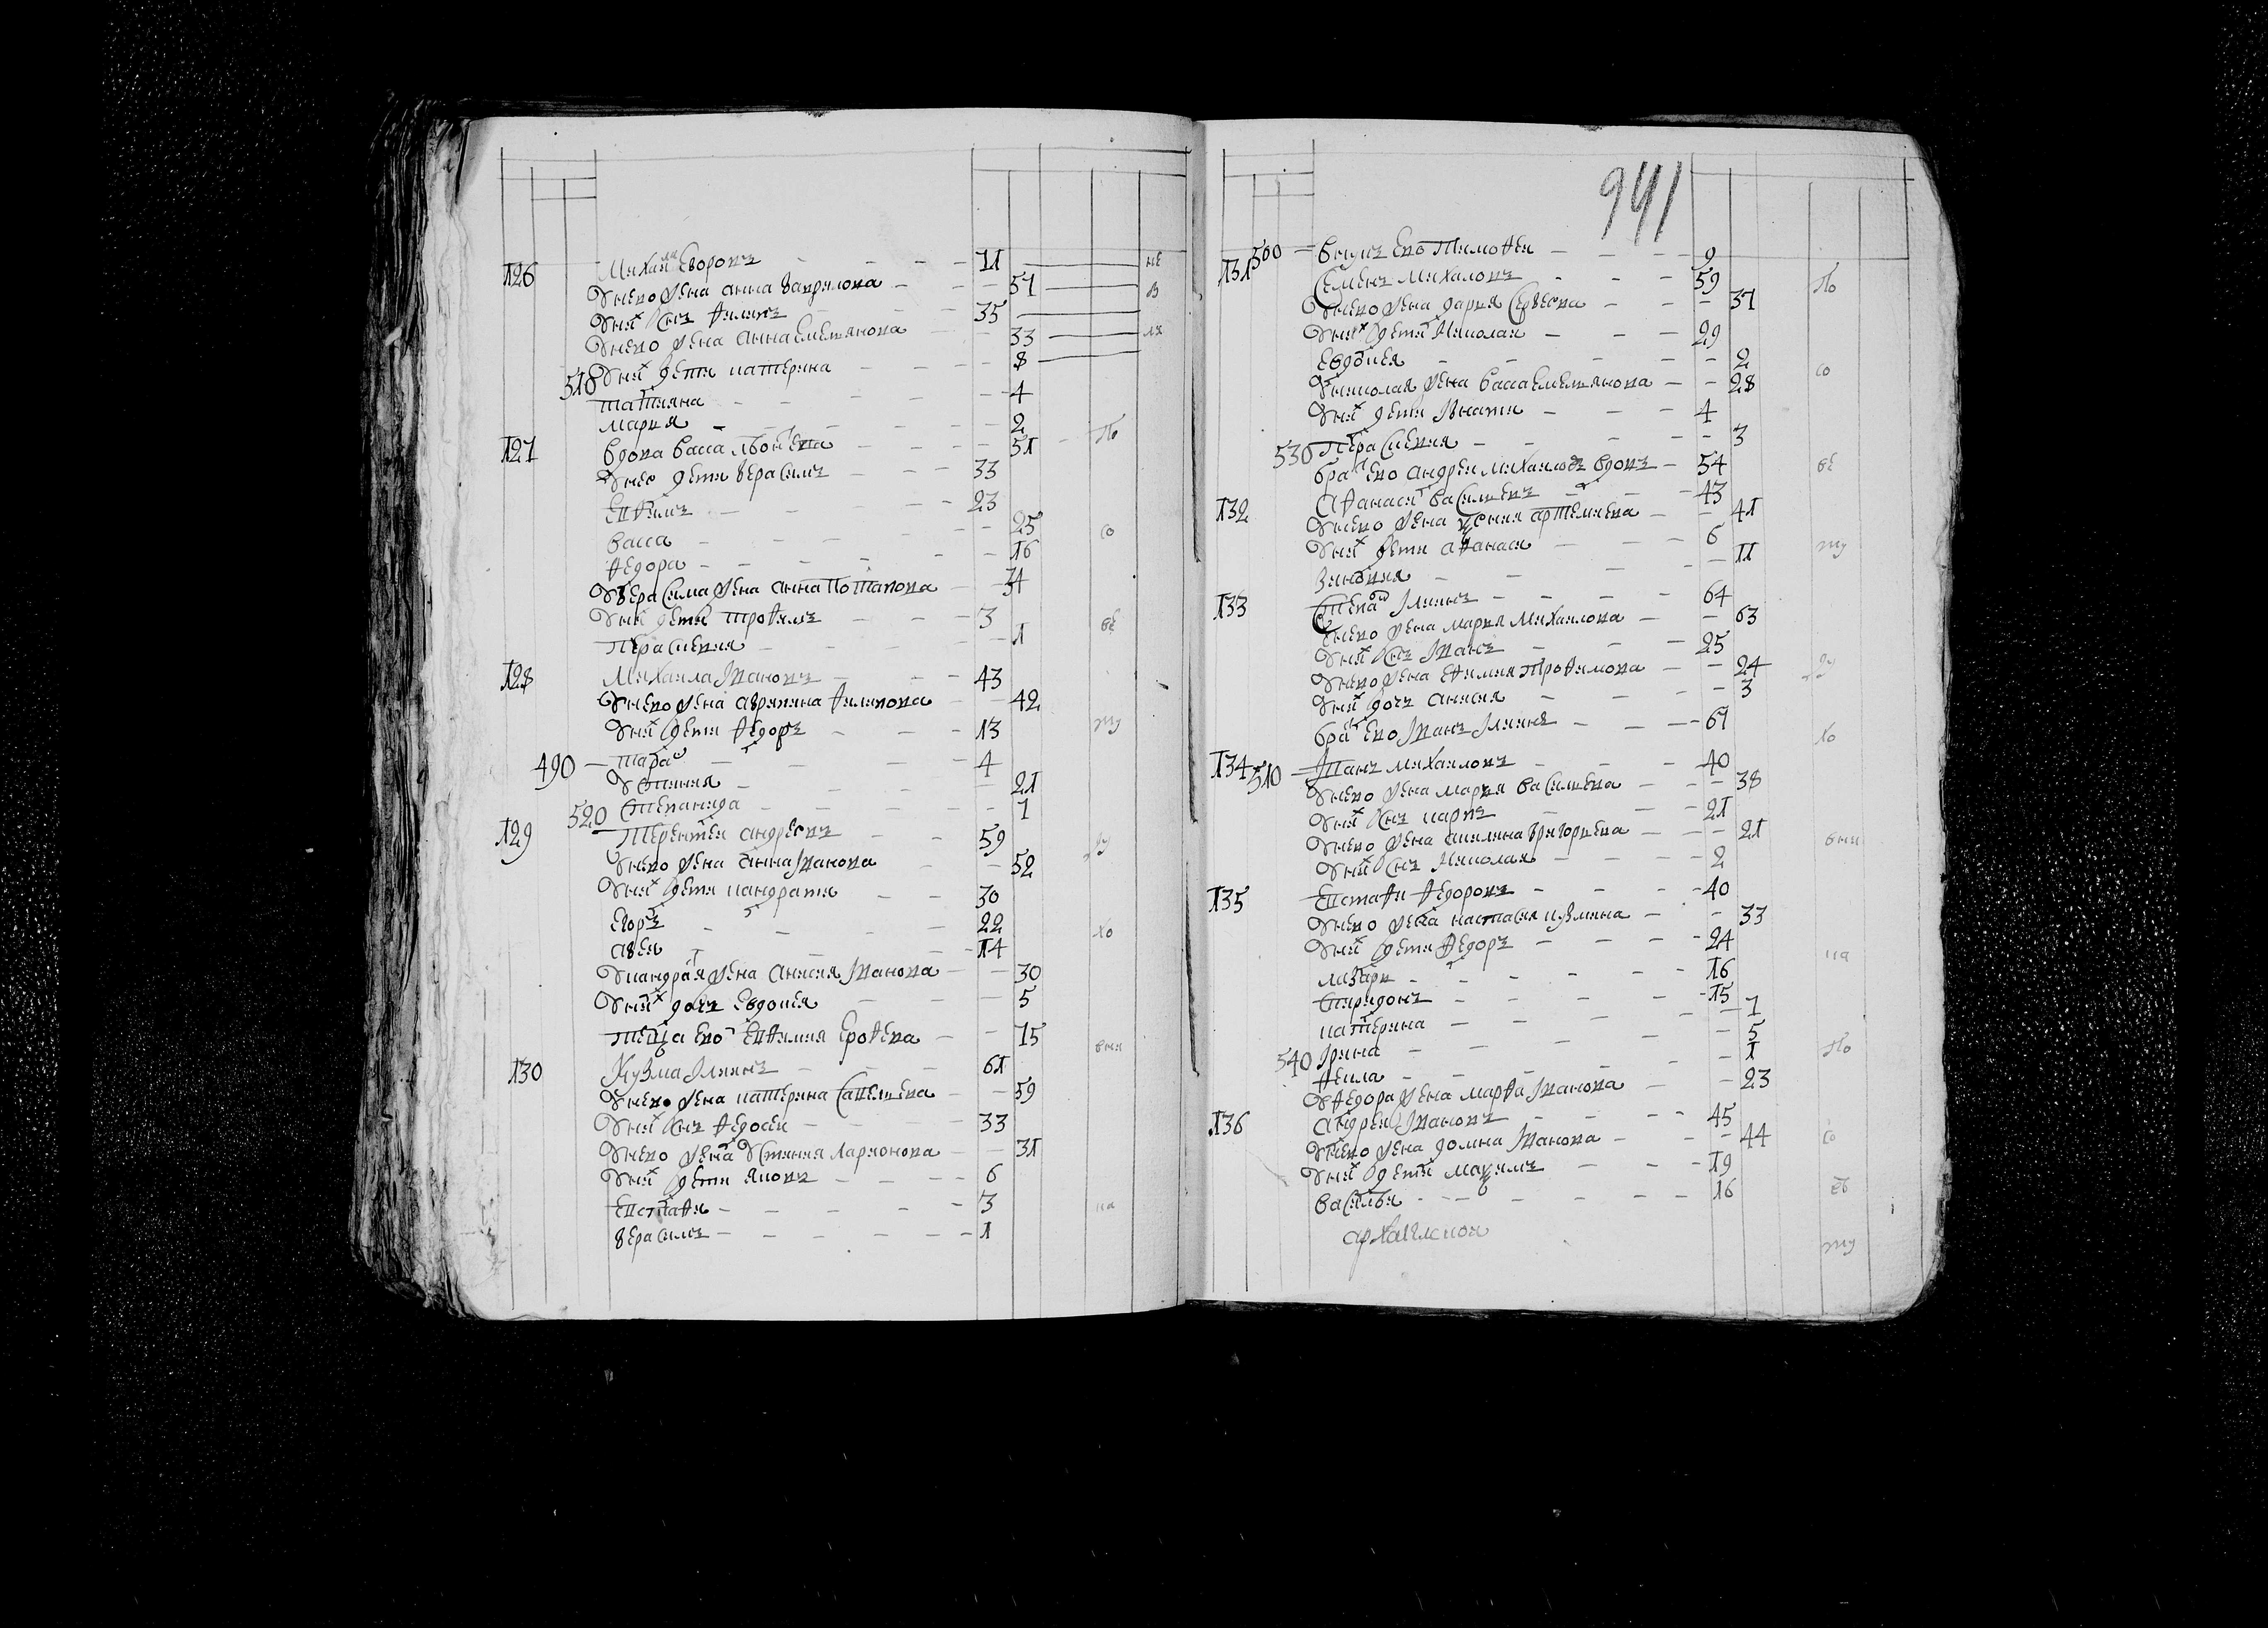 126 Михаила Егоровъ 71 не
Унево жена анна гаврилова 57 в
Уних сынъ Филипъ 35
Унево жена анна Емельянова 33 ли
518 Уних дети катерина 8
татияна 4
мария 2
127 вдова васса 51 по
Унее дети герасимъ 33
Ефимъ 23
васса 25 со
Федора 16
Угерасима жена анна Потапова 34
Уних дети трофимъ 3 ве
Парасковия 1
128 Михаила Ивановъ 43
Унево жена аграпина Филипова 42
Уних дети Федоръ 13 ту
490 тарас 4
Устиния 21
520 Степанида 7
129 Терентеи андреевъ 59 ду
Унево жена анна Иванова 52
Уних дети кандрати 30
Егоръ 22 хо
авеи 14
Укандратя жена анисия Иванова 30
Уних дочь Евдокия 5
теща ево Ефимия Ерофева 75 вни
130 Кузма Ильинъ 61
Унево жена катерина Савельева 59
Уних сынъ Федосеи 33
Унево жена Устиния Ларионова 31
Уних дети яковъ 6
Евстафи 3 ка
герасимъ 1
941
500 внукъ ево Тимофеи 9
131 Семенъ Михаловъ 59 по
Унево жена дария Сергеева 37
Уних дети Николаи 29
Евдокея 2 со
Униколая жена васса Емельянова 28
Уних дети Игнати 4
530 Парасковия 3
брат ево андреи Михаловъ вдовъ 54 ве
132 Афанасеи васильевъ 43
Унево жена ксения артемиева 41
Уних дети афанаси 6 ту
Зиновия 11
133 Степан Ильинъ 64
Унево жена мария Михаилова 63
Уних сынъ Иванъ 25
Унево жена Ефимия Трофимова 24 ду
Уних дочь анисия 3
брат ево Иванъ Ильинъ 67 хо
134 510 Иванъ михаиловъ 40
Унево жена мария васильева 38
Уних сынъ карпъ 21
Унево жена акилина григориева 21 вни
Уних сынъ Николаи 2
135 Евстафи Федоровъ 40
Унево жена настасия кузмина 33
Уних дети Федоръ 24 ка
лазари 16
Спиридонъ 15
катерина 7
Ирина 5 по
540 Фекла 1
УФедора жена марфа Иванова 23
136 андреи Ивановъ 45
Унево жена домна Иванова 44 со
Уних дети максимъ 19
василеи 16 ев
архангелской ту